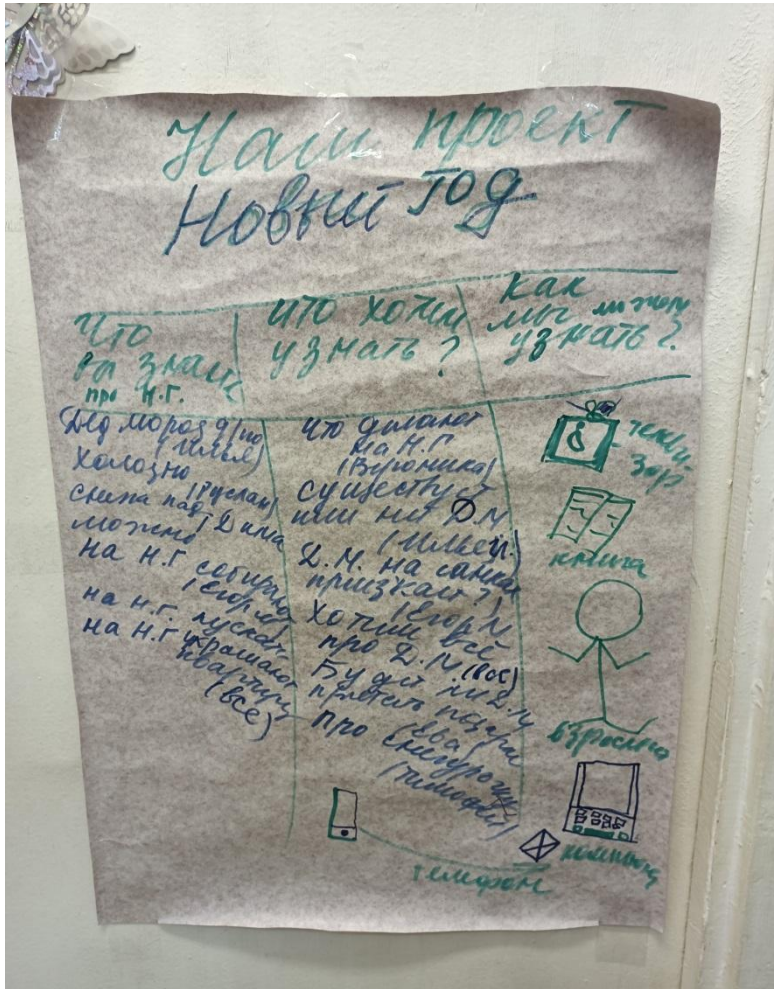 Наш проект
Новый год
Что
мы знаем
про Н.Г.
что хотим
узнать?
Как
мы можем
узнать?
Дед мороз
(Илья)
холодно
(Руслан)
снежа
можно (Дима
на Н.Г собирают
(Егор М
на Н.Г. пускать
на Н.Г украшают
квартиру
(все)
что делают
на Н.Г
(Вероника)
существует
или нет Д.М
(Илья
Д.М. на санках
приезжает?
(Егор М
Хотим всё
про Д.М (все)
Будет ли Д.М
приносить подарки
(Ева
про Снегурочку
(Тимофей)
телевизор
книга
взрослые
компьютер
телефон